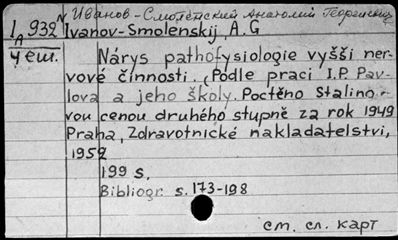 Иванов-Смоленский Анатолий Георгиевич
I A 932 Ivanov-Smolenskij, A. G
4 еш. Nárys pathofysiologie vyšši ner-
vové činnosti. (Podle praci I. P. Pav-
lova a jeho školy. Poctěno Stalino-
vou cenou druhého stupně za rok 1949
Praha, Zdravotnické nakladatelstvi,
1952
199 s.
Bibliogr. s. 173-198
см. сл. карт